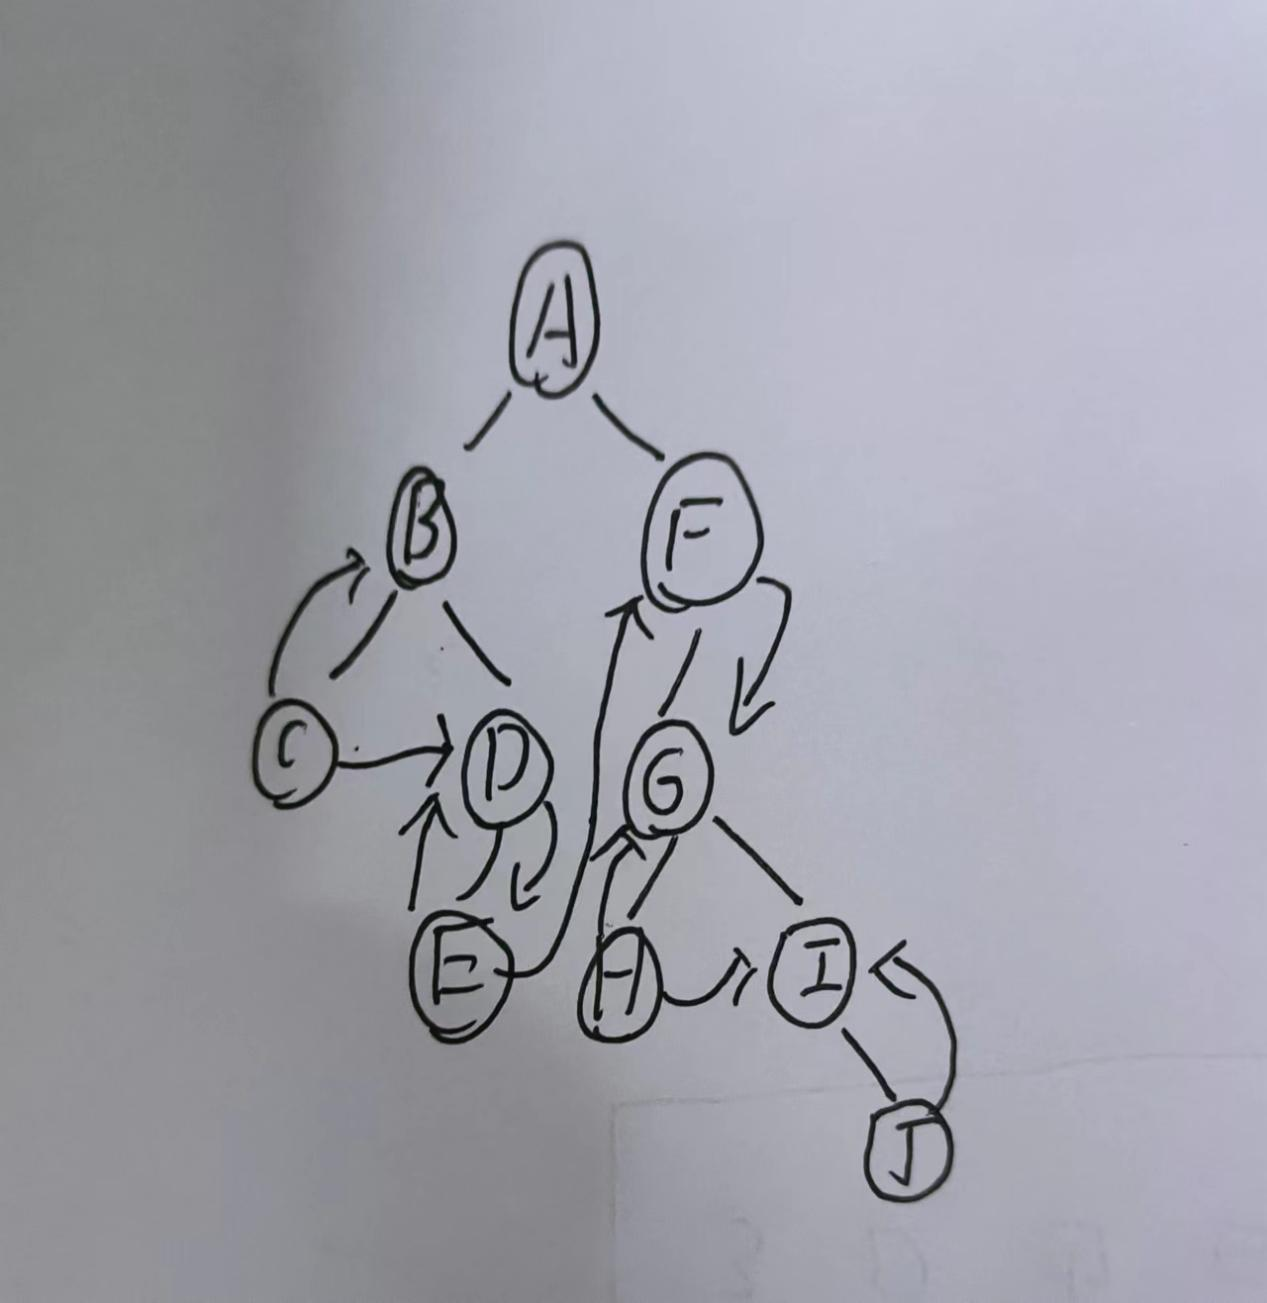 A
B F
C D G
E H I
J